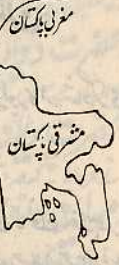 مغربی پاکستان
مشرقی پاکستان